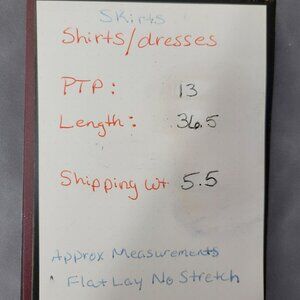 Skirts
Shirts/dresses
PTP: 13
Length: 36.5
Shipping wt 5.5
Approx Measurements
Flat Lay No Stretch